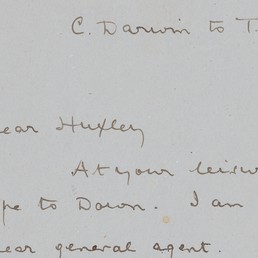 C. Darwin to T.
ear Huxley
At your leisu
pe to Down. I am
ear general agent.